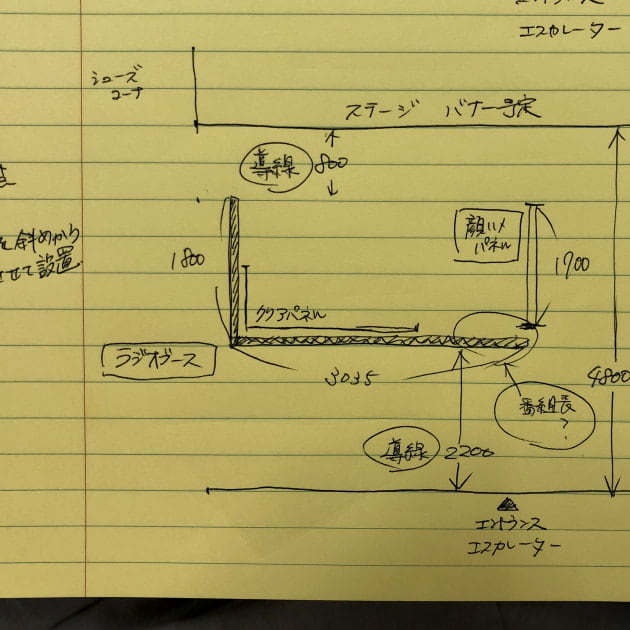 エスカレーター
シューズ
コーナ
ステージ バナー予定
導線 800
斜めから
せて設置
1800
顔ハメ
パネル
1700
クリアパネル
ラジオブース
3035
4800
番組表
?
導線 2200
エントランス
エスカレーター